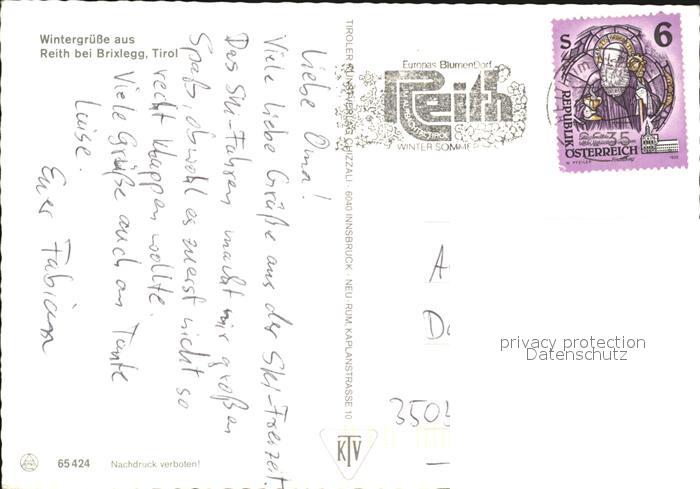 Wintergrüße aus
Reith bei Brixlegg, Tirol
Liebe Oma!
Viele liebe Grüße aus der Ski-Freizeit.
Das Ski-Fahren macht mir großen
Spaß, obwohl es zuerst nicht so
recht klappen wollte.
Viele Grüße auch an Tante
Luise.
Euer Fabian
65 424 Nachdruck verboten!
TIROLER KUNSTVERLAG CHIZZALI · 6040 INNSBRUCK · NEU-RUM, KAPLANSTRASSE 10
KTV
Europas Blumendorf
Reith
WINTER SOMMER
S 6
REPUBLIK
ÖSTERREICH
A
D
350
privacy protection
Datenschutz